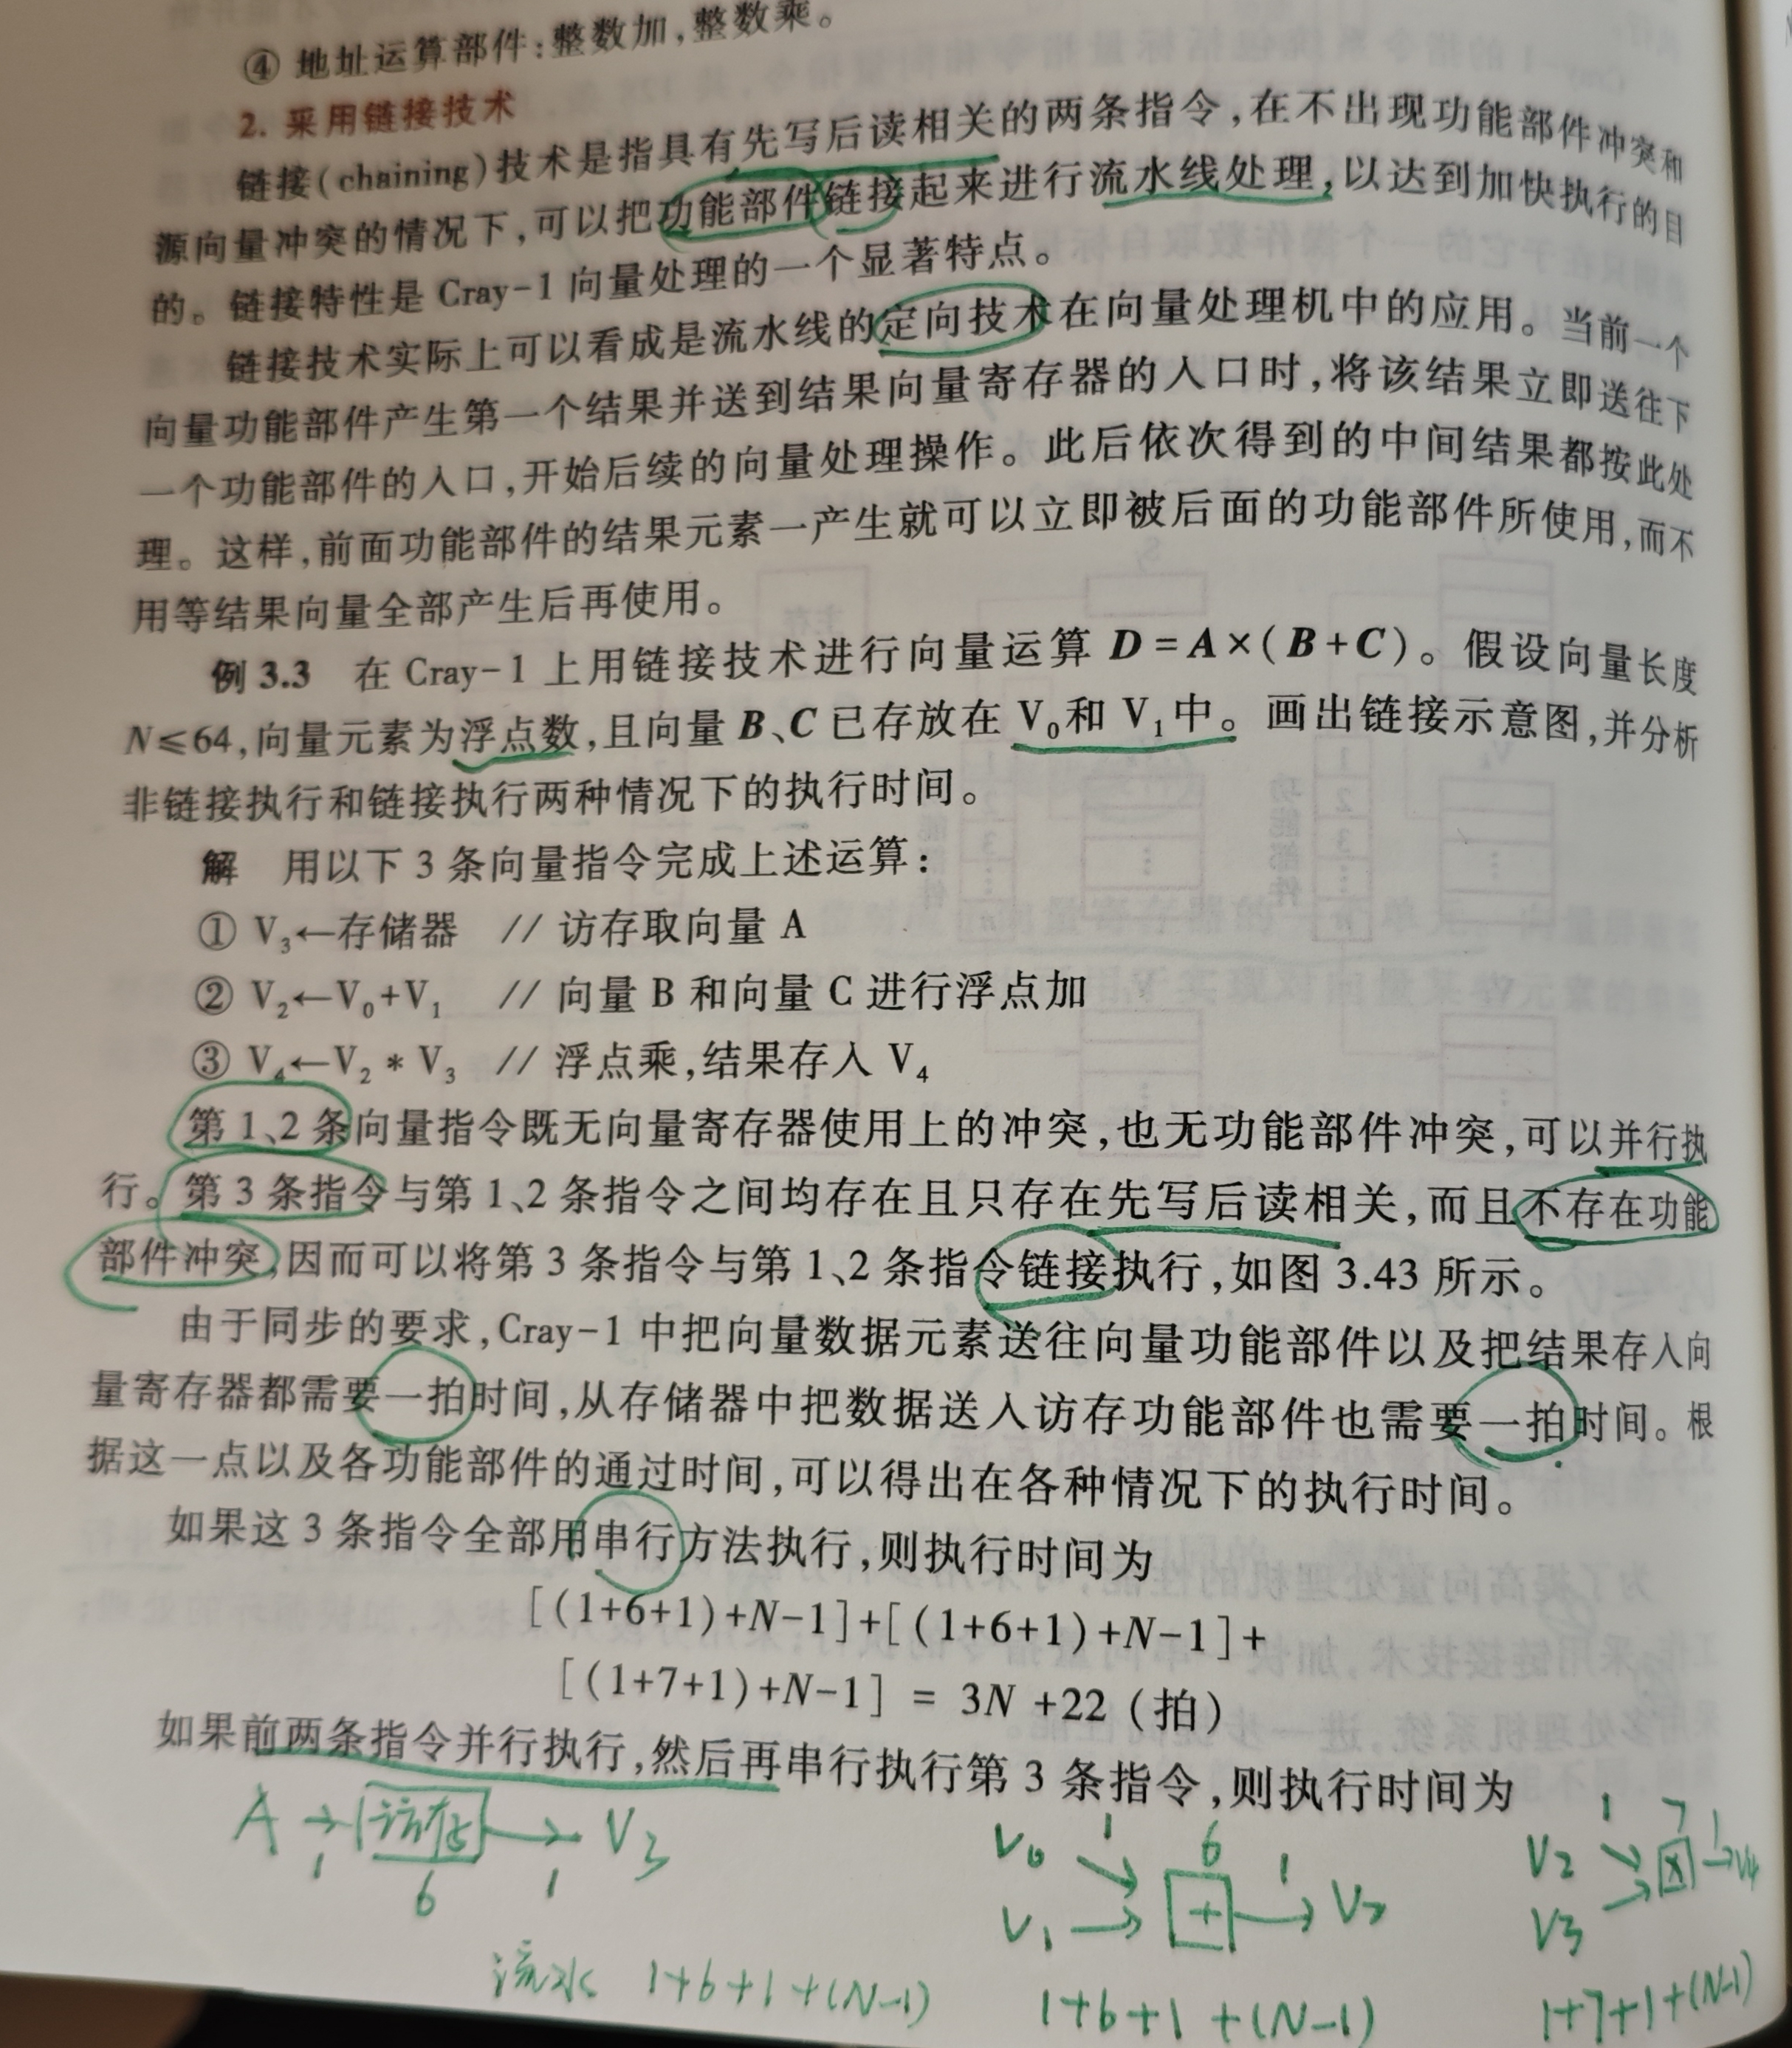 ④ 地址运算部件:整数加,整数乘。
2. 采用链接技术
链接(chaining)技术是指具有先写后读相关的两条指令,在不出现功能部件冲突和
源向量冲突的情况下,可以把功能部件链接起来进行流水线处理,以达到加快执行的目
的。链接特性是 Cray-1 向量处理的一个显著特点。
链接技术实际上可以看成是流水线的定向技术在向量处理机中的应用。当前一个
向量功能部件产生第一个结果并送到结果向量寄存器的入口时,将该结果立即送往下
一个功能部件的入口,开始后续的向量处理操作。此后依次得到的中间结果都按此处
理。这样,前面功能部件的结果元素一产生就可以立即被后面的功能部件所使用,而不
用等结果向量全部产生后再使用。
例 3.3 在 Cray-1 上用链接技术进行向量运算 D=A×(B+C)。假设向量长度
N≤64,向量元素为浮点数,且向量 B、C 已存放在 V₀和 V₁中。画出链接示意图,并分析
非链接执行和链接执行两种情况下的执行时间。
解 用以下 3 条向量指令完成上述运算:
① V₃←存储器 // 访存取向量 A
② V₂←V₀+V₁ // 向量 B 和向量 C 进行浮点加
③ V₄←V₂*V₃ // 浮点乘,结果存入 V₄
第 1、2 条向量指令既无向量寄存器使用上的冲突,也无功能部件冲突,可以并行执
行。第 3 条指令与第 1、2 条指令之间均存在且只存在先写后读相关,而且不存在功能
部件冲突,因而可以将第 3 条指令与第 1、2 条指令链接执行,如图 3.43 所示。
由于同步的要求,Cray-1 中把向量数据元素送往向量功能部件以及把结果存入向
量寄存器都需要一拍时间,从存储器中把数据送入访存功能部件也需要一拍时间。根
据这一点以及各功能部件的通过时间,可以得出在各种情况下的执行时间。
如果这 3 条指令全部用串行方法执行,则执行时间为
[(1+6+1)+N-1]+[(1+6+1)+N-1]+
[(1+7+1)+N-1] = 3N +22 (拍)
如果前两条指令并行执行,然后再串行执行第 3 条指令,则执行时间为
A → 访存 → V₃
1 6 1
V₀ 1 6
V₁ → + 1 → V₂
V₂ 1 7 1
V₃ → × → V₄
流水 1+6+1+(N-1)
1+6+1+(N-1)
1+7+1+(N-1)